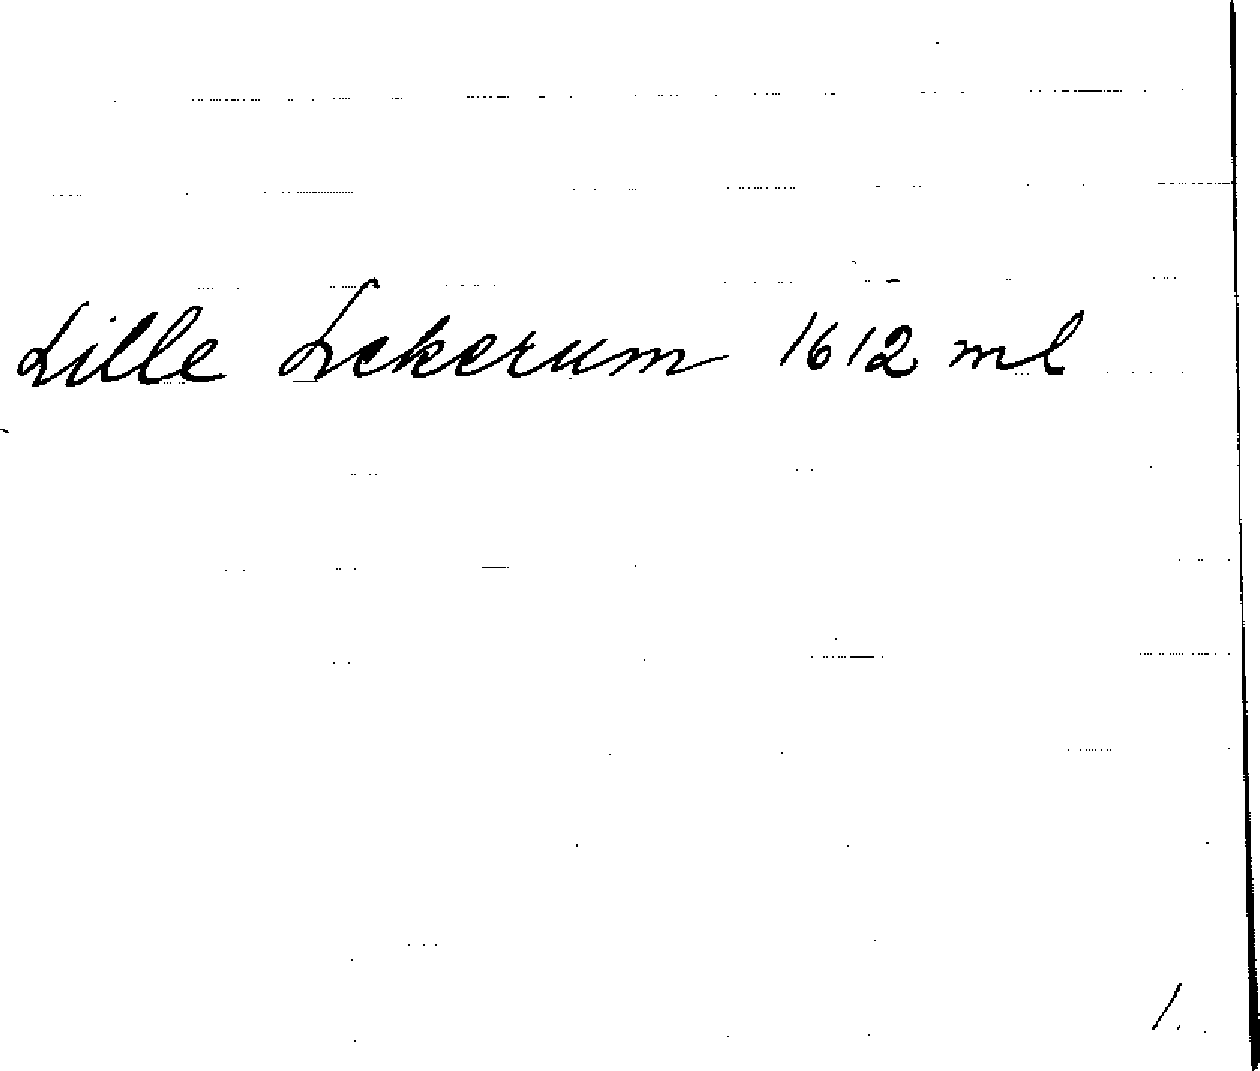 Lille Lekerum 1612 ml
1.